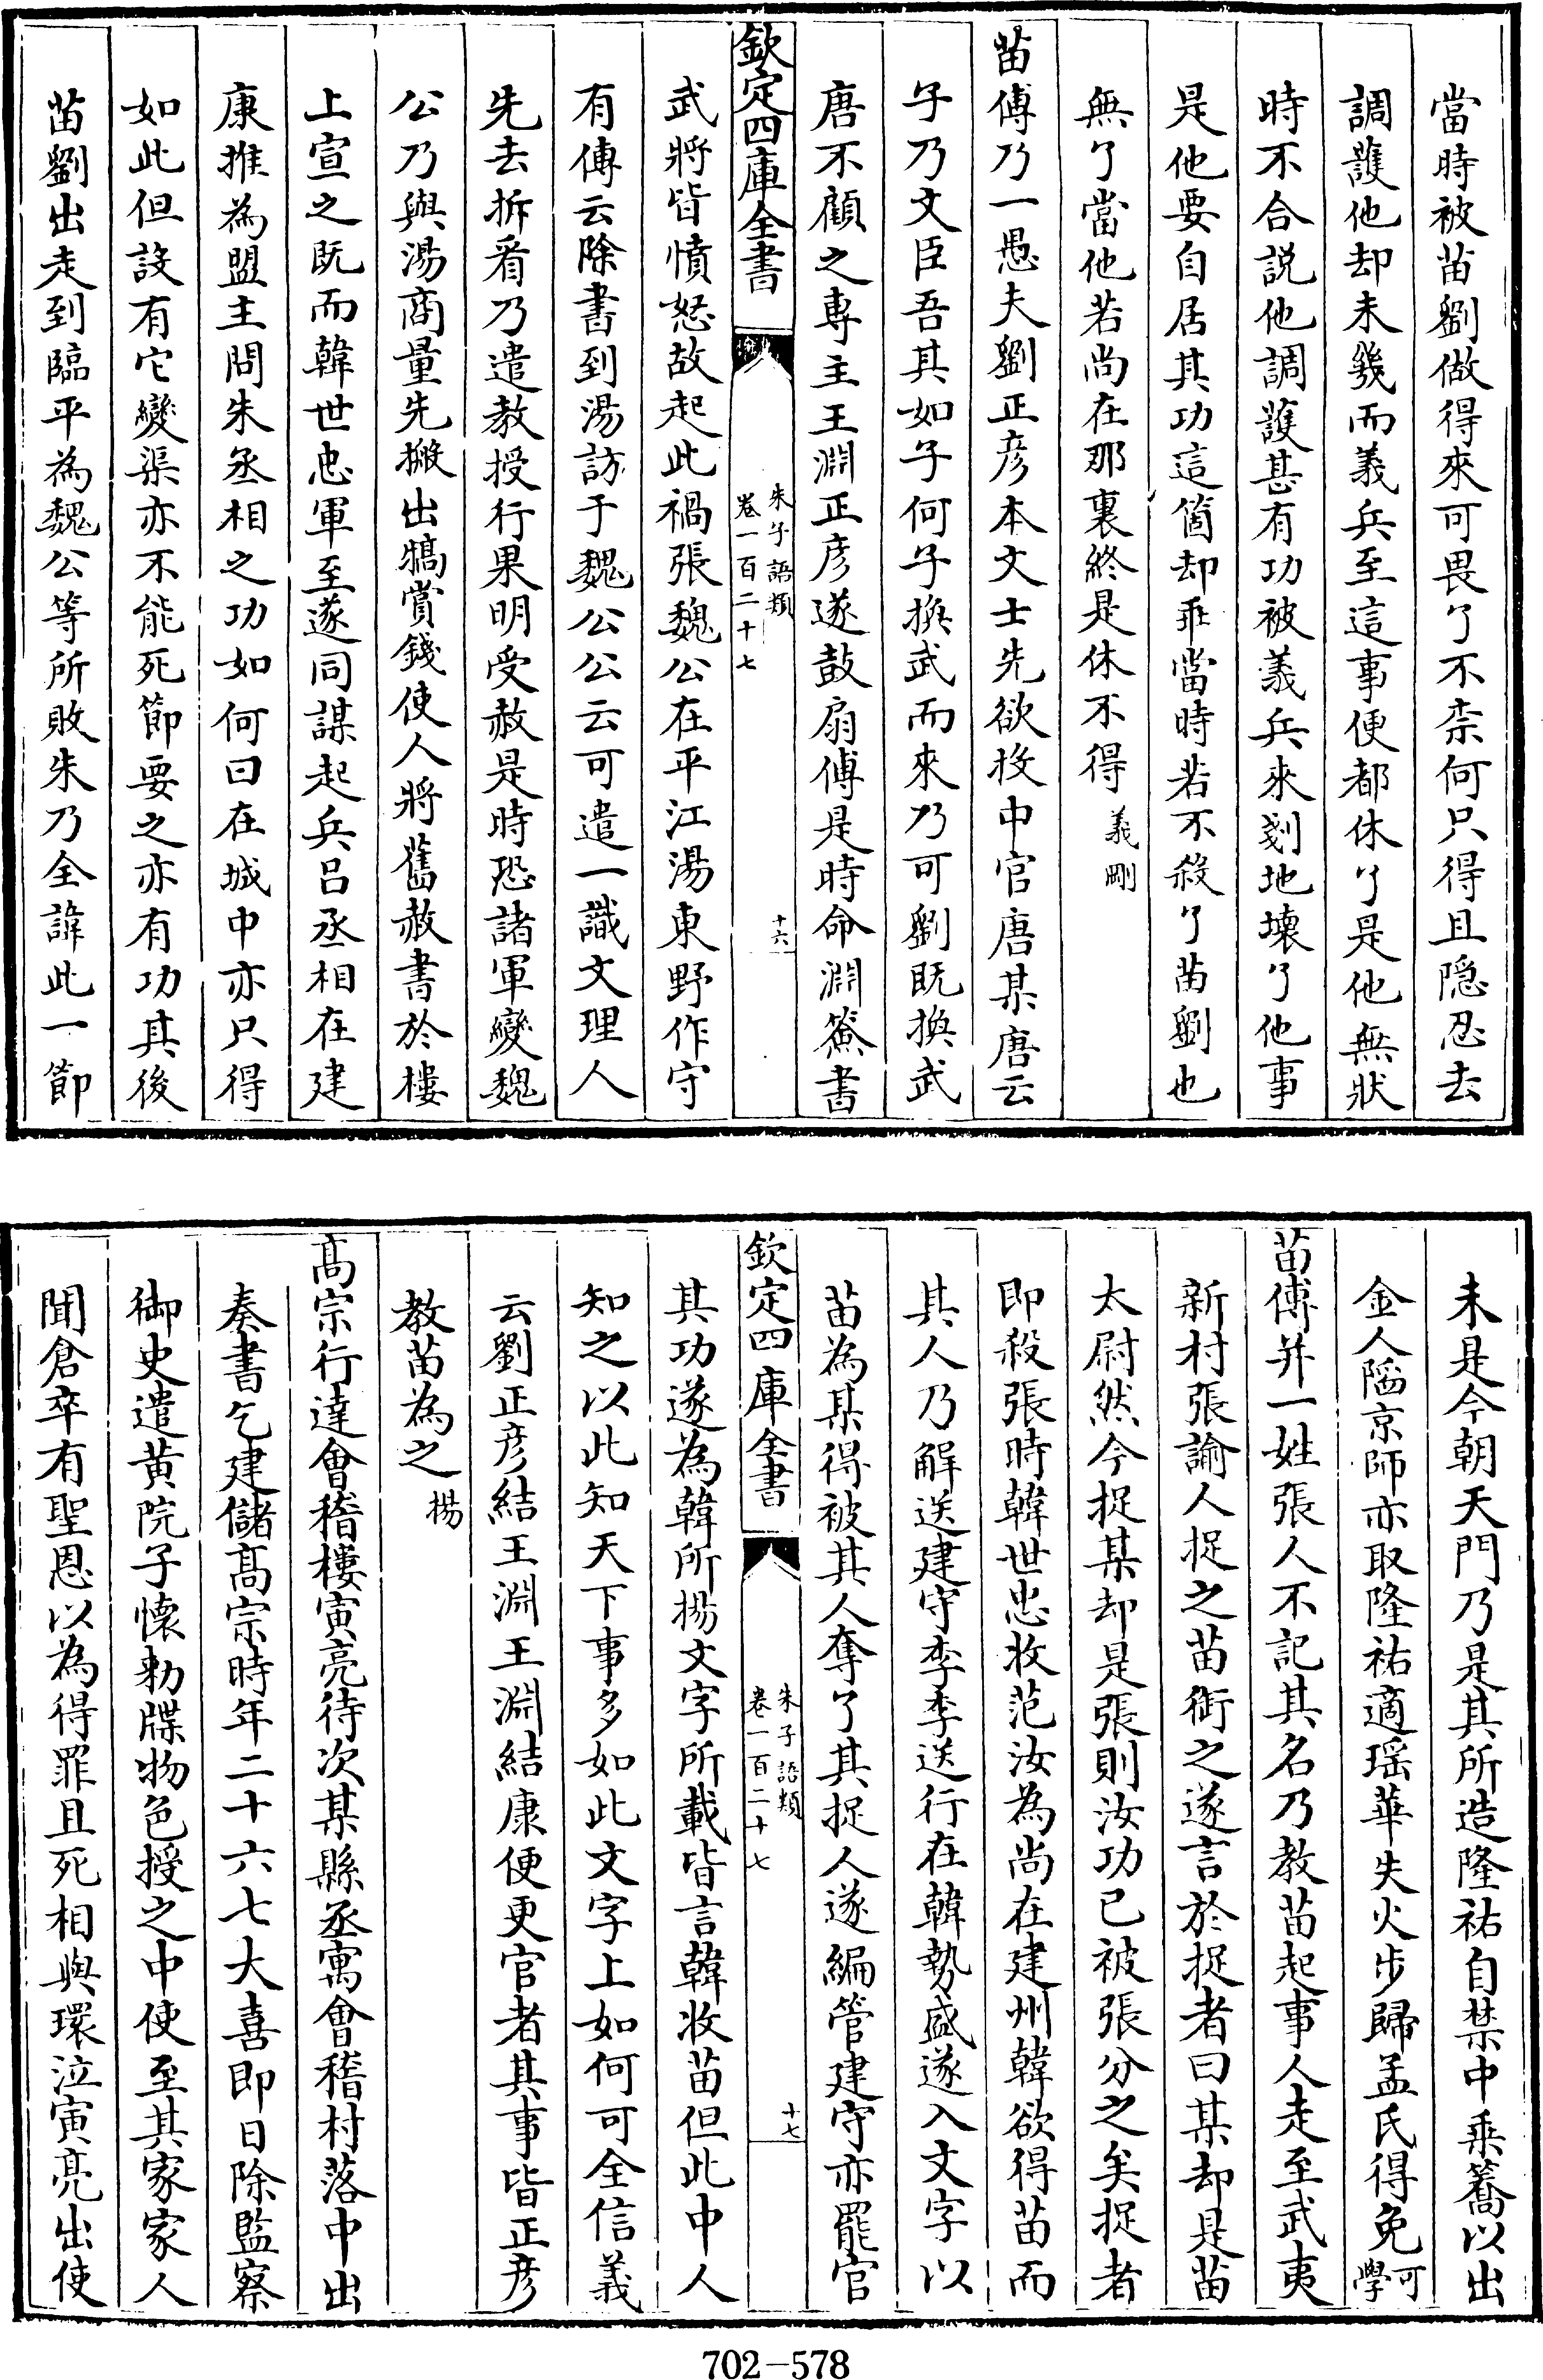 當時被苗劉做得來可畏了不柰何只得且隠忍去
調護他却未幾而義兵至這事便都休了是他無狀
時不合説他調護甚有功被義兵來剗地壊了他事
是他要自居其功這箇却乖當時若不殺了苗劉也
無了當他若尚在那裏終是休不得義剛
苗傅乃一愚夫劉正彦本文士先欲投中官唐某唐云
子乃文臣吾其如子何子換武而來乃可劉既換武
唐不顧之専主王淵正彦遂鼓扇傅是時命淵簽書
欽定四庫全書
朱子語類
卷一百二十七
十六
武將皆憤怒故起此禍張魏公在平江湯東野作守
有傳云除書到湯訪于魏公公云可遣一識文理人
先去拆看乃遣教授行果明受赦是時恐諸軍變魏
公乃與湯商量先搬出犒賞錢使人將舊赦書於樓
上宣之既而韓世忠軍至遂同謀起兵吕丞相在建
康推為盟主問朱丞相之功如何曰在城中亦只得
如此但設有它變渠亦不能死節要之亦有功其後
苗劉出走到臨平為魏公等所敗朱乃全諱此一節
未是今朝天門乃是其所造隆祐自禁中乗籌以出
金人陷京師亦取隆祐適瑶華失火步歸孟氏得免可學
苗傅并一姓張人不記其名乃教苗起事人走至武夷
新村張諭人捉之苗銜之遂言於捉者曰某却是苗
太尉然今捉某却是張則汝功已被張分之矣捉者
即殺張時韓世忠收范汝為尚在建州韓欲得苗而
其人乃解送建守李李送行在韓勢盛遂入文字以
苗為某得被其人奪了其捉人遂編管建守亦罷官
欽定四庫全書
朱子語類
卷一百二十七
十七
其功遂為韓所揚文字所載皆言韓收苗但此中人
知之以此知天下事多如此文字上如何可全信義
云劉正彦結王淵王淵結康便更官者其事皆正彦
教苗為之揚
髙宗行達會稽樓寅亮待次某縣丞寓會稽村落中出
奏書乞建儲髙宗時年二十六七大喜即日除監察
御史遣黄院子懷勅牒物色授之中使至其家家人
聞倉卒有聖恩以為得罪且死相與環泣寅亮出使
702-578